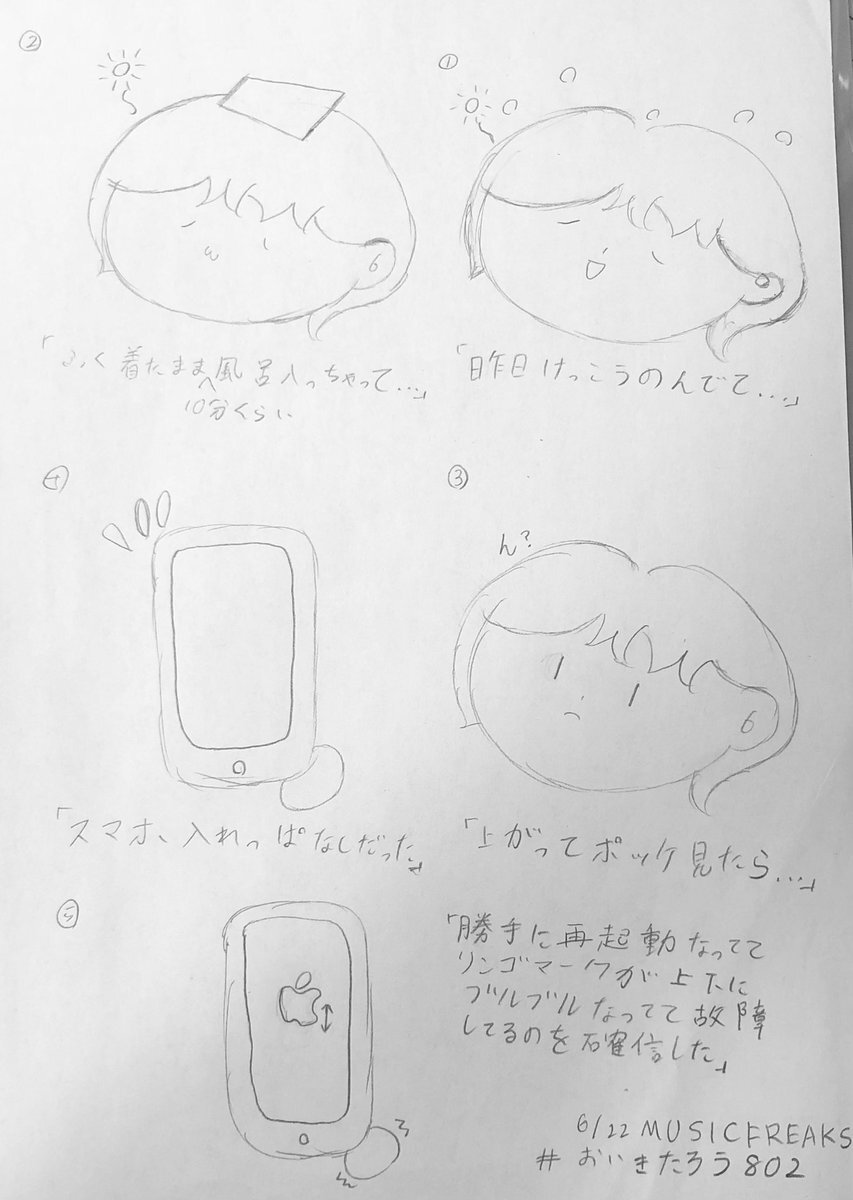 ①
「昨日けっこうのんでて…」
②
「ふく着たまま風呂入っちゃって…」
へ
10分くらい
③
ん?
「上がってポッケ見たら…」
④
「スマホ、入れっぱなしだった」
⑤
「勝手に再起動なってて
リンゴマークが上下に
ブルブルなってて故障
してるのを確信した」
6/22 MUSICFREAKS
# おいきたろう802